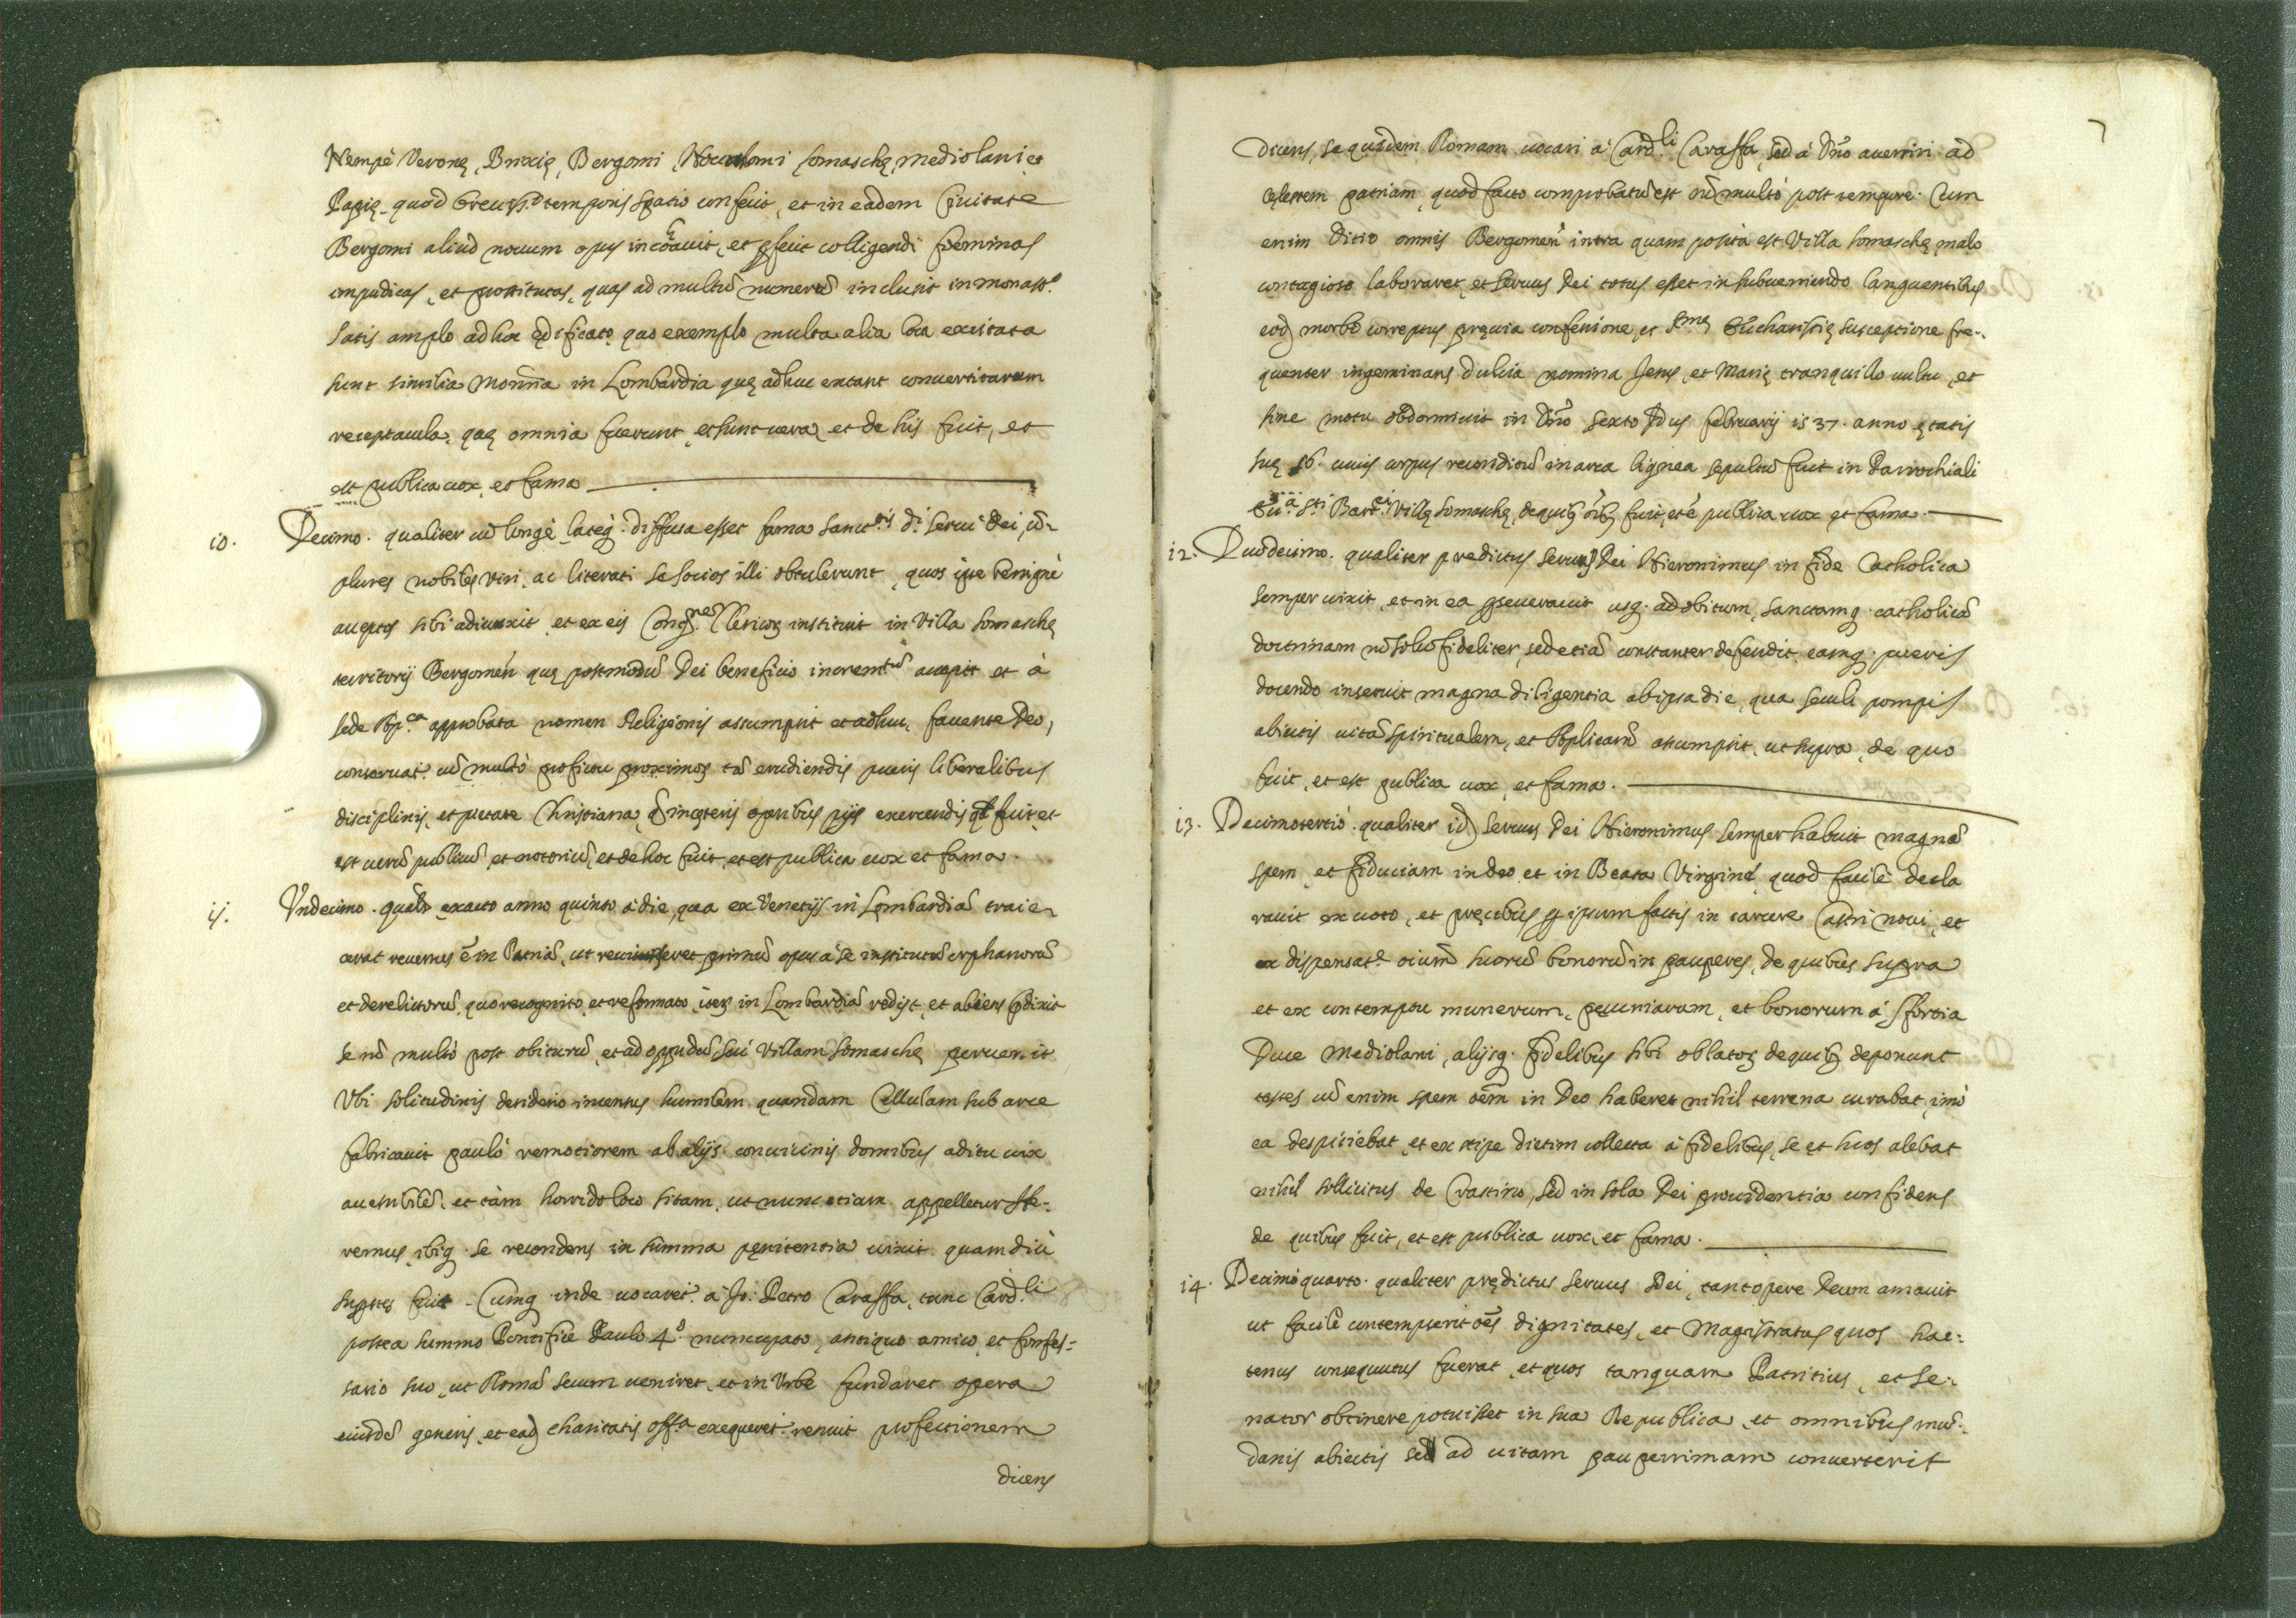 Nempè Veronę, Brixię, Bergomi, Nouocomi somaschę, mediolani et
Papię. quod breuiss.º temporis spatio confecit, et in eadem Ciuitate
Bergomi aliud nouum opus incohauit, et ꝑfecit colligendi fęminas
impudicas, et prostitutas, quas ad multũ numerũ inclusit in monast.º
satis amplo ad hoc ędificato, quo exemplo multa alia loca excitata
sunt similia Monr̃ia in Lombardia quę adhuc extant conuertitarum
receptacula, quę omnia fuerunt, et sunt uera, et de his fuit, et
est publica uox, et fama
10. Decimo. qualiter cũ longè lateq. diffusa esset fama sanct.tis d.i serui Dei, cõ-
plures nobiles viri, ac literati se socios illi obtulerunt, quos ipse benignè
acceptos sibi adiunxit, et ex eis Congr.nem Clericoꝝ instituit in Villa somaschę
territorij Bergomeñ quę postmodũ Dei beneficio increm.tũ accepit et à
sede Ap.ca approbata nomen Religionis assumpsit et adhuc, fauente Deo,
conseruat. cũ multò profectu proximoꝝ tã erudiendis pueris liberalibus
disciplinis, et pietate Christiana, q̃ in cęteris operibus pijs exercendis qd fuit, et
est uerũ publicũ, et notoriũ, et de hoc fuit, et est publica uox et fama.
11. Vndecimo. qualr̃ exacto anno quinto à die, qua ex Venetijs in Lombardiã traie-
cerat reuersus ẽ in Patriã, ut reuiseret primũ opus à se institutũ orphanorũ
et derelictorũ, quo recognito, et reformato, iteꝝ in Lombardiã redijt, et abiens p̃dixit
se nõ multò post obiturũ, et ad oppidũ seù Villam somaschę peruenit
Vbi solitudinis desiderio incensus humilem quandam Cellulam sub arce
fabricauit paulò remotiorem ab alijs conuicinis domibus aditu uix
accessibilẽ, et tàm horrido loco sitam, ut nunc etiam appelletur He-
remus, ibiq. se recondens in summa pęnitentia uixit quamdiù
suꝑstes fuit. Cumq inde uocaret.r à Jo: Petro Caraffa, tunc Card.li
postea summo Pontifice Paulo 4.º nuncupato, antiquo amico, et Confes-
sario suo, ut Romã secum ueniret, et in Vrbe fundaret opera
eiusdẽ generis, et ead. charitatis off.a exequeret.r renuit profectionem
dicens
7
Dicens, se quidem Romam uocari à Card.li Caraffa, sed à Dño auertiri ad
cęlestem patriam, quod facto comprobatũ est nõ multò post tempore. Cum
enim Ditio omnis Bergomeñ intra quam posita est Villa somaschę, malo
contagioso laboraret, et seruus Dei totus esset in subueniendo languentibus
eod. morbo correptus pręuia confessione, et s.mę Eucharistię susceptione fre-
quenter ingeminans dulcia nomina Jesus, et Marię tranquillo uultu, et
sine motu obdormiuit in Dño sexto Idus februarij 1537. anno ętatis
suę 56. cuius corpus reconditũ in arca lignea sepultũ fuit in Parrochiali
Eccl.a S.ti Bart.ei Villę somaschę, de quibꝫ oĩbꝫ fuit, et ẽ publica uox et fama.
12. Duodecimo. qualiter predictus seruus Dei Hieronimus in fide Catholica
semper uixit, et in ea ꝑseuerauit usq. ad obitum, sanctamq. catholicã
doctrinam nõ solũ fideliter, sed etiã constanter defendit, eamq. pueris
docendo inseruit magna diligentia ab ipsa die, qua seculi pompis
abiectis uitã spiritualem, et Aplicam̃ assumpsit, ut supra, de quo
fuit, et est publica uox, et fama.
13. Decimotertiò. qualiter id. seruus Dei Hieronimus semper habuit magnã
spem, et fiduciam in deo, et in Beata Virgine, quod facilè decla
rauit ex uoto, et pręcibus ꝑ ipsum factis in carcere Castri noui, et
ex dispensat.e oium̃ suorũ bonorũ in pauperes, de quibus supra
et ex contemptu munerum, pecuniarum, et bonorum à Sfortia
Duce Mediolani, alijsq. fidelibus sibi oblatoꝝ de quibꝫ deponunt
testes cũ enim spem oẽm in Deo haberet nihil terrena curabat, imò
ea despiciebat, et ex stipe dietim collecta à fidelibus, se et suos alebat
nihil sollicitus de Crastino, sed in sola Dei prouidentia confidens
de quibus fuit, et est publica uox, et fama.
14. Decimoquarto. qualiter prędictus seruus Dei, tantopere Deum amauit
ut facilè contempserit oẽs dignitates, et Magistratus quos hac-
tenus consequutus fuerat, et quos tanquam Patritius, et Se-
nator obtinere potuisset in sua Republica, et omnibus mũ-
danis abiectis sed ad uitam pauperrimam conuerterit